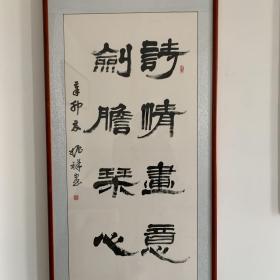 詩情畫意
劍膽琴心
辛卯文